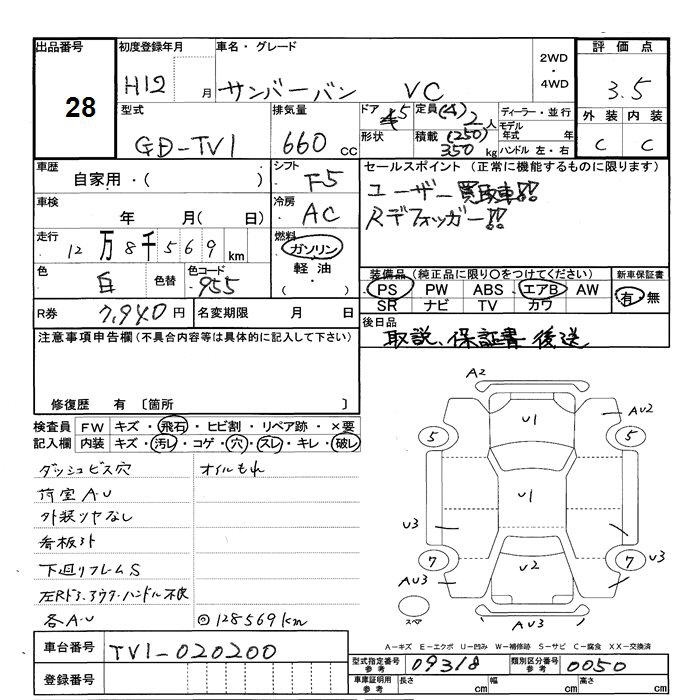 出品番号 初度登録年月 車名・グレード 評価点
28 H12 月 サンバーバン VC 2WD・4WD 3.5
型式 排気量 ドア 5 定員(4) 2人 ディーラー・並行 外装 内装
GD-TV1 660 cc 形状 積載(250) 350 kg モデル年式 年 C C
ハンドル 左・右
車歴 シフト セールスポイント(正常に機能するものに限ります)
自家用・( ) F5 ユーザー買取車!!
車検 冷房 Rデフォッガー!!
年 月( 日) AC
走行 燃料
12万8千569km ガソリン
軽油
・( )
色 色替 色コード 装備品(純正品に限り○をつけてください) 新車保証書
白 955 PS PW ABS エアB AW 有・無
SR ナビ TV カワ
R券 7,940円 名変期限 月 日 後日品
取説、保証書 後送
注意事項申告欄(不具合内容等は具体的に記入して下さい)
修復歴 有〔箇所 〕
検査員 FW キズ・飛石・ヒビ割・リペア跡・×要
記入欄 内装 キズ・汚レ・コゲ・穴・スレ・キレ・破レ
ダッシュビス穴 オイルもれ
荷室AU
外装ツヤなし
看板3t
下廻りフレムS
左Rドア.アウターハンドル不良
各AU ◎128569km
A2
U1 AU2
5 5
U1
U3 U3
7 7 U3
AU3 U2
スペア AU3
A-キズ E-エクボ U-凹み W-補修跡 S-サビ C-腐食 XX-交換済
車台番号 TV1-020200
登録番号
型式指定番号 参考 09318 類別区分番号 参考 0050
車庫証明用 参考 長さ cm 幅 cm 高さ cm